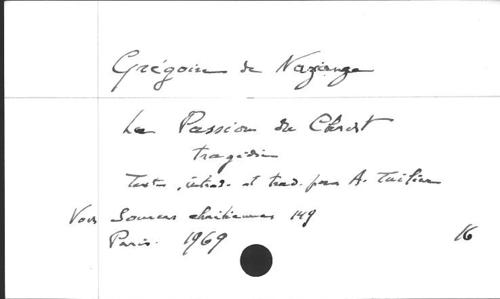 Grégoire de Nazianze
La Passion du Christ
tragédie
Texte, introd. et trad. par A. Tuilier
Voir Sources chrétiennes 149
Paris. 1969
16